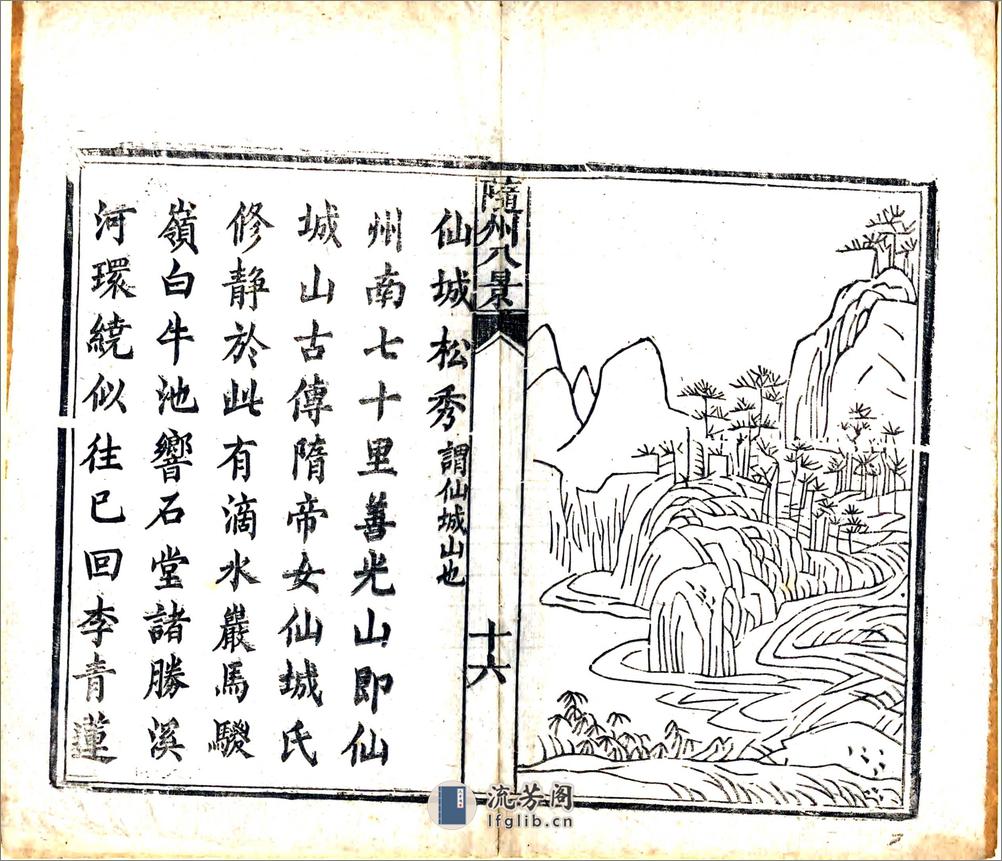 隨州八景
十六
仙城松秀謂仙城山也
州南七十里善光山即仙
城山古傳隋帝女仙城氏
修静於此有滴水巖馬騣
嶺白牛池響石堂諸勝溪
河環繞似往已回李青蓮
流芳阁
lfglib.cn